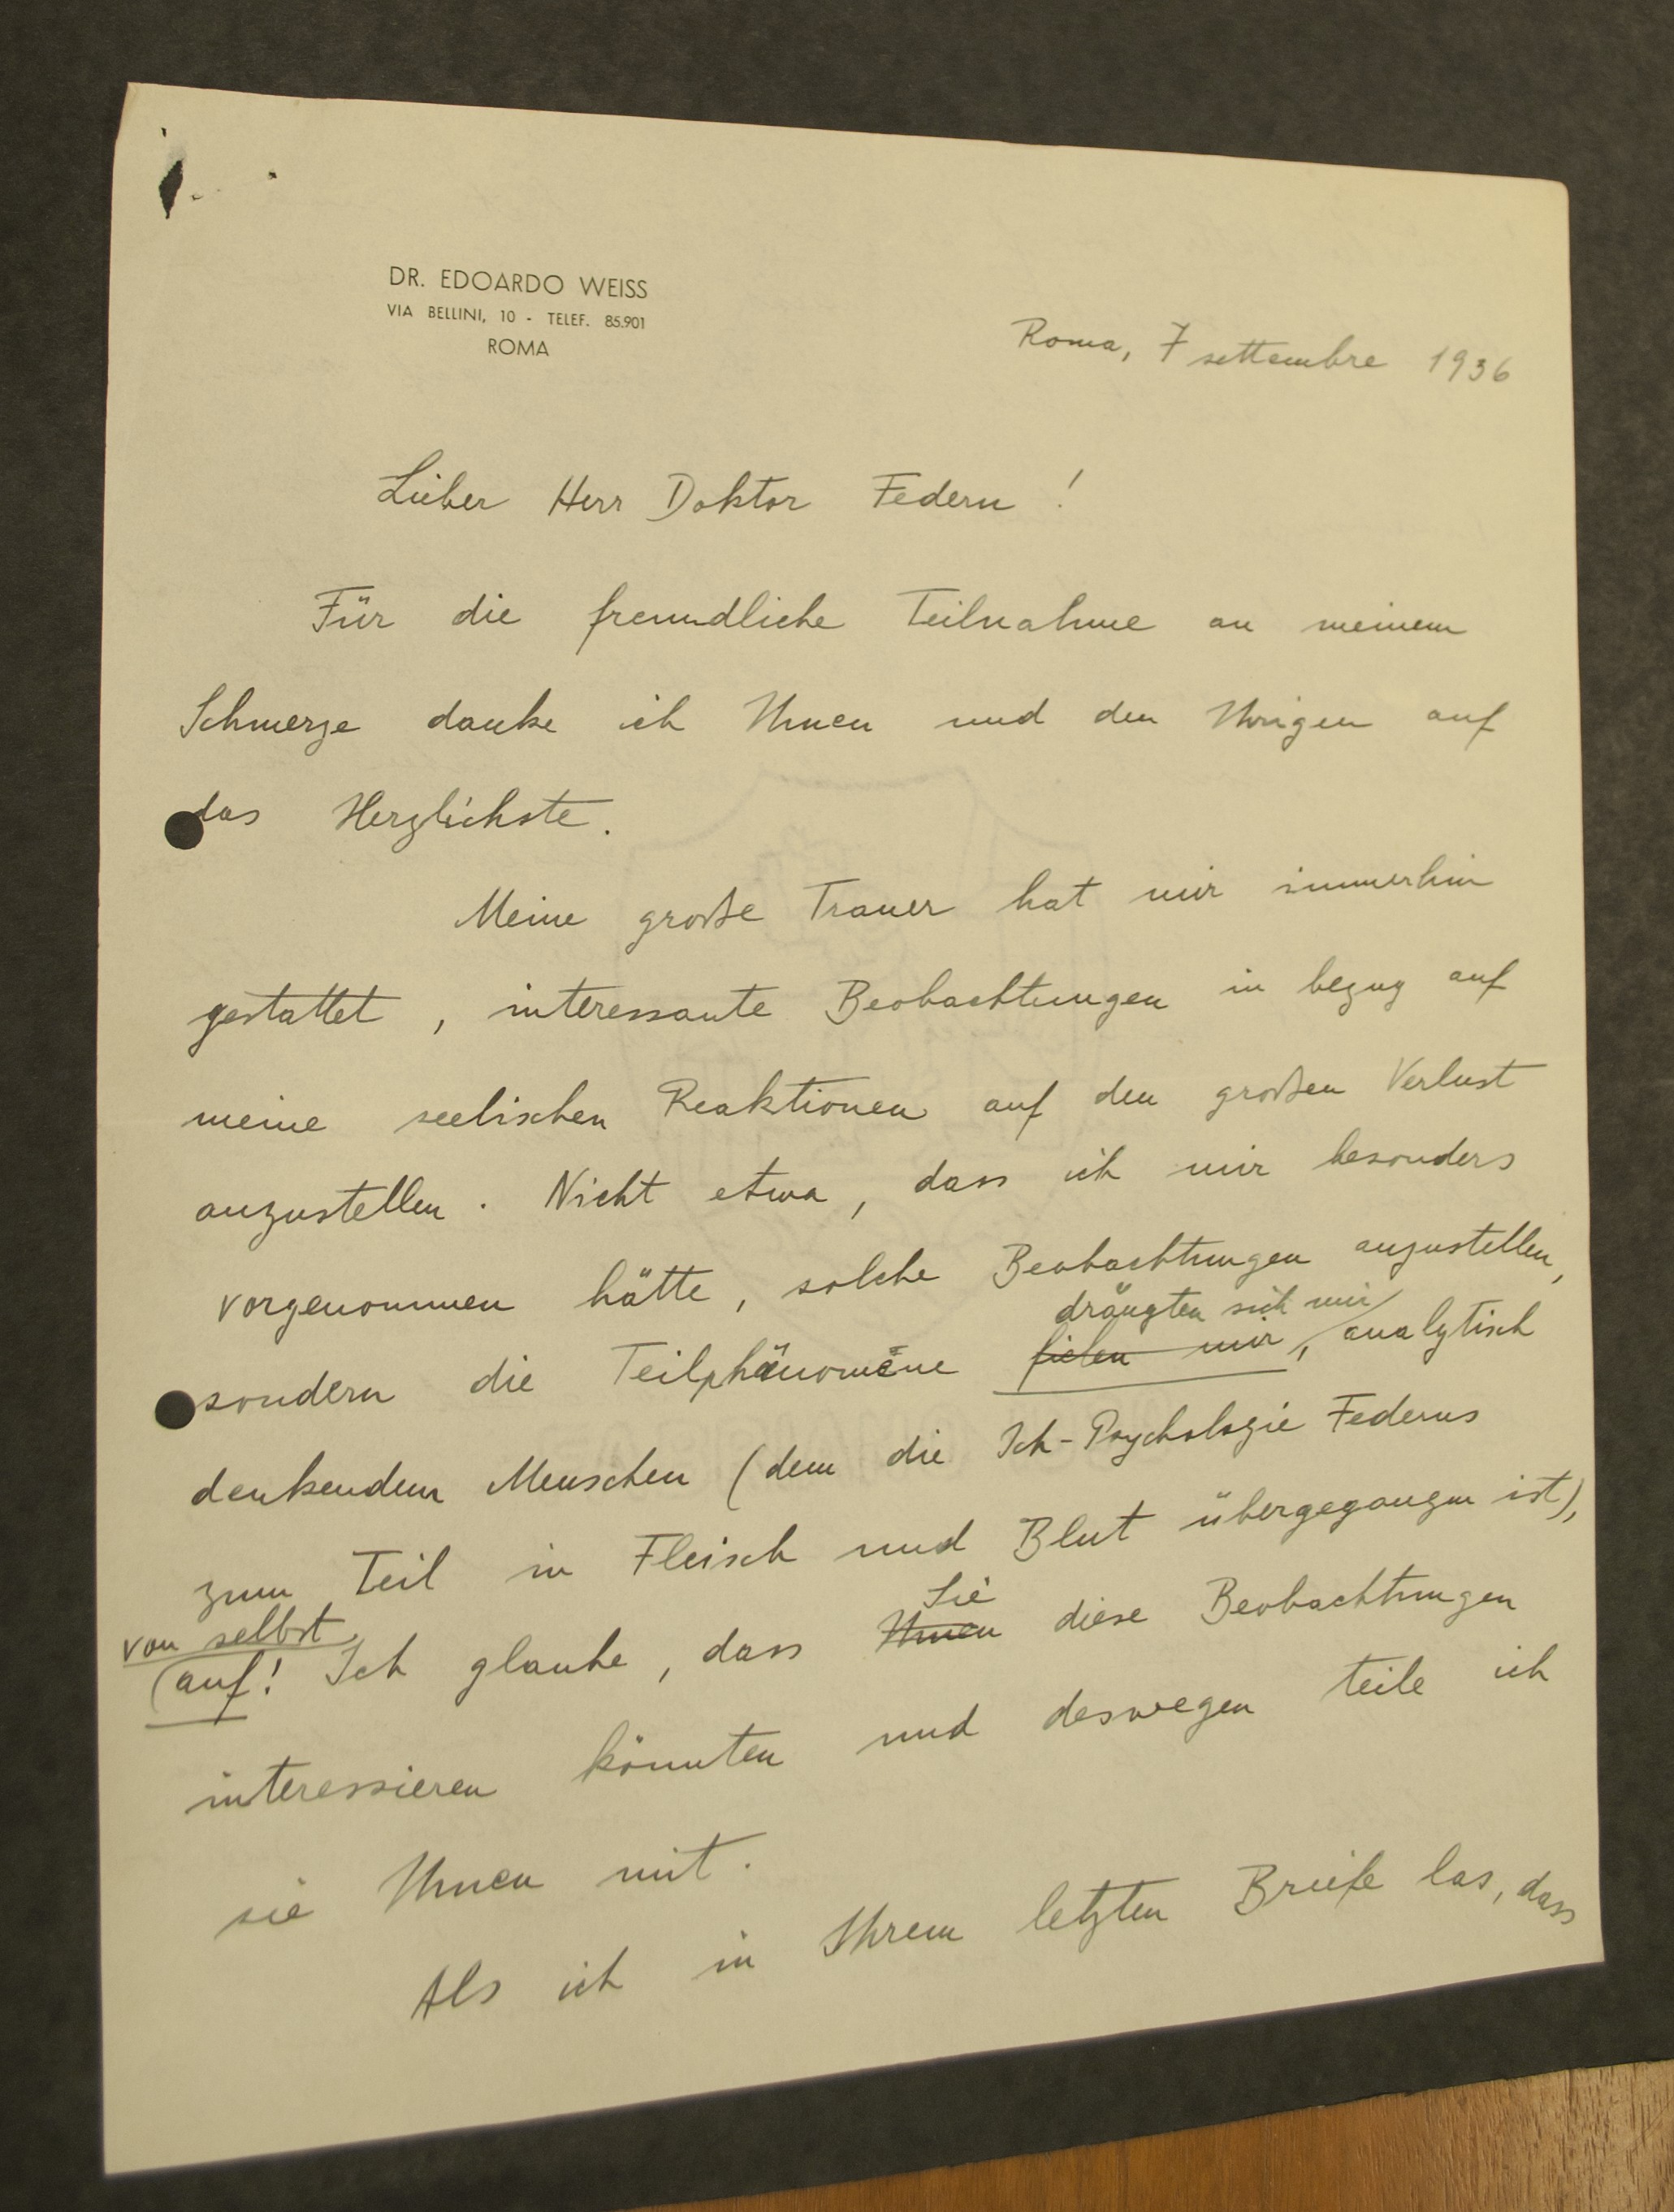 DR. EDOARDO WEISS
VIA BELLINI, 10 - TELEF. 85.901
ROMA
Roma, 7 settembre 1936
Lieber Herr Doktor Federn !
Für die freundliche Teilnahme an meinem
Schmerze danke ich Ihnen und den Ihrigen auf
das Herzlichste.
Meine große Trauer hat mir immerhin
gestattet, interessante Beobachtungen in bezug auf
meine seelischen Reaktionen auf den großen Verlust
anzustellen. Nicht etwa, dass ich mir besonders
vorgenommen hätte, solche Beobachtungen anzustellen,
drängten sich mir
sondern die Teilphänomene fielen mir, analytisch
denkendem Menschen (dem die Ich-Psychologie Federns
zum Teil in Fleisch und Blut übergegangen ist),
von selbst
Sie
auf! Ich glaube, dass Ihnen diese Beobachtungen
interessieren könnten und deswegen teile ich
sie Ihnen mit.
Als ich in Ihrem letzten Briefe las, dass